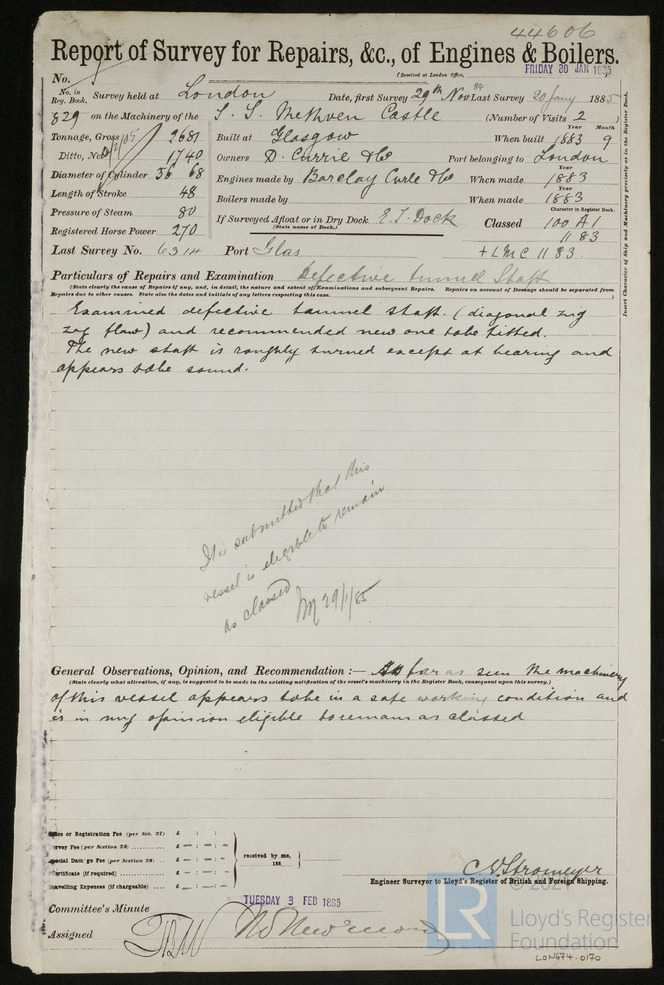 44606
Report of Survey for Repairs, &c., of Engines & Boilers.
(Received at London Office, FRIDAY 30 JAN 1885
No.
No. in Reg. Book. Survey held at London Date, first Survey 29th Nov 84 Last Survey 20 Jany 1885
829 on the Machinery of the S. S. Methven Castle (Number of Visits 2
Tonnage, Gross 2681 Built at Glasgow When built Year 1883 Month 9
Ditto, Net 1740 Owners D. Currie & Co Port belonging to London
Diameter of Cylinder 36 68 Engines made by Barclay Curle & Co When made Year 1883
Length of Stroke 48 Boilers made by When made Year 1883
Pressure of Steam 80 If Surveyed Afloat or in Dry Dock E. I. Dock Character in Register Book. Classed 100 A1
(State name of Dock.)
Registered Horse Power 270 11 83
Last Survey No. 6314 Port Glas + LMC 11 83
Insert Character of Ship and Machinery precisely as in the Register Book.
Particulars of Repairs and Examination Defective tunnel Shaft
(State clearly the cause of Repairs if any, and, in detail, the nature and extent of Examinations and subsequent Repairs. Repairs on account of Damage should be separated from
Repairs due to other causes. State also the dates and initials of any letters respecting this case. )
Examined defective tunnel shaft. (diagonal zig
zag flaw) and recommended new one to be fitted.
The new shaft is roughly turned except at bearing and
appears to be sound.
It is submitted that this
vessel is eligible to remain
as classed
29/1/85
General Observations, Opinion, and Recommendation :— As far as seen the machinery
(State clearly what alteration, if any, is suggested to be made in the existing notification of the vessel's machinery in the Register Book, consequent upon this survey.)
of this vessel appears to be in a safe working condition and
is in my opinion eligible to remain as classed
Office or Registration Fee (per Sec. 27) £ : :
Survey Fee (per Section 28) £ — : — : —
Special Damage Fee (per Section 28) £ — : — : —
Certificate (if required) £ — : — : —
Travelling Expenses (if chargeable) £ — : — : —
received by me,
188
C. E. Stromeyer
Engineer Surveyor to Lloyd's Register of British and Foreign Shipping.
TUESDAY 3 FEB 1885
Committee's Minute
Assigned
© 2021
LR
Lloyd's Register
Foundation
LON674-0170